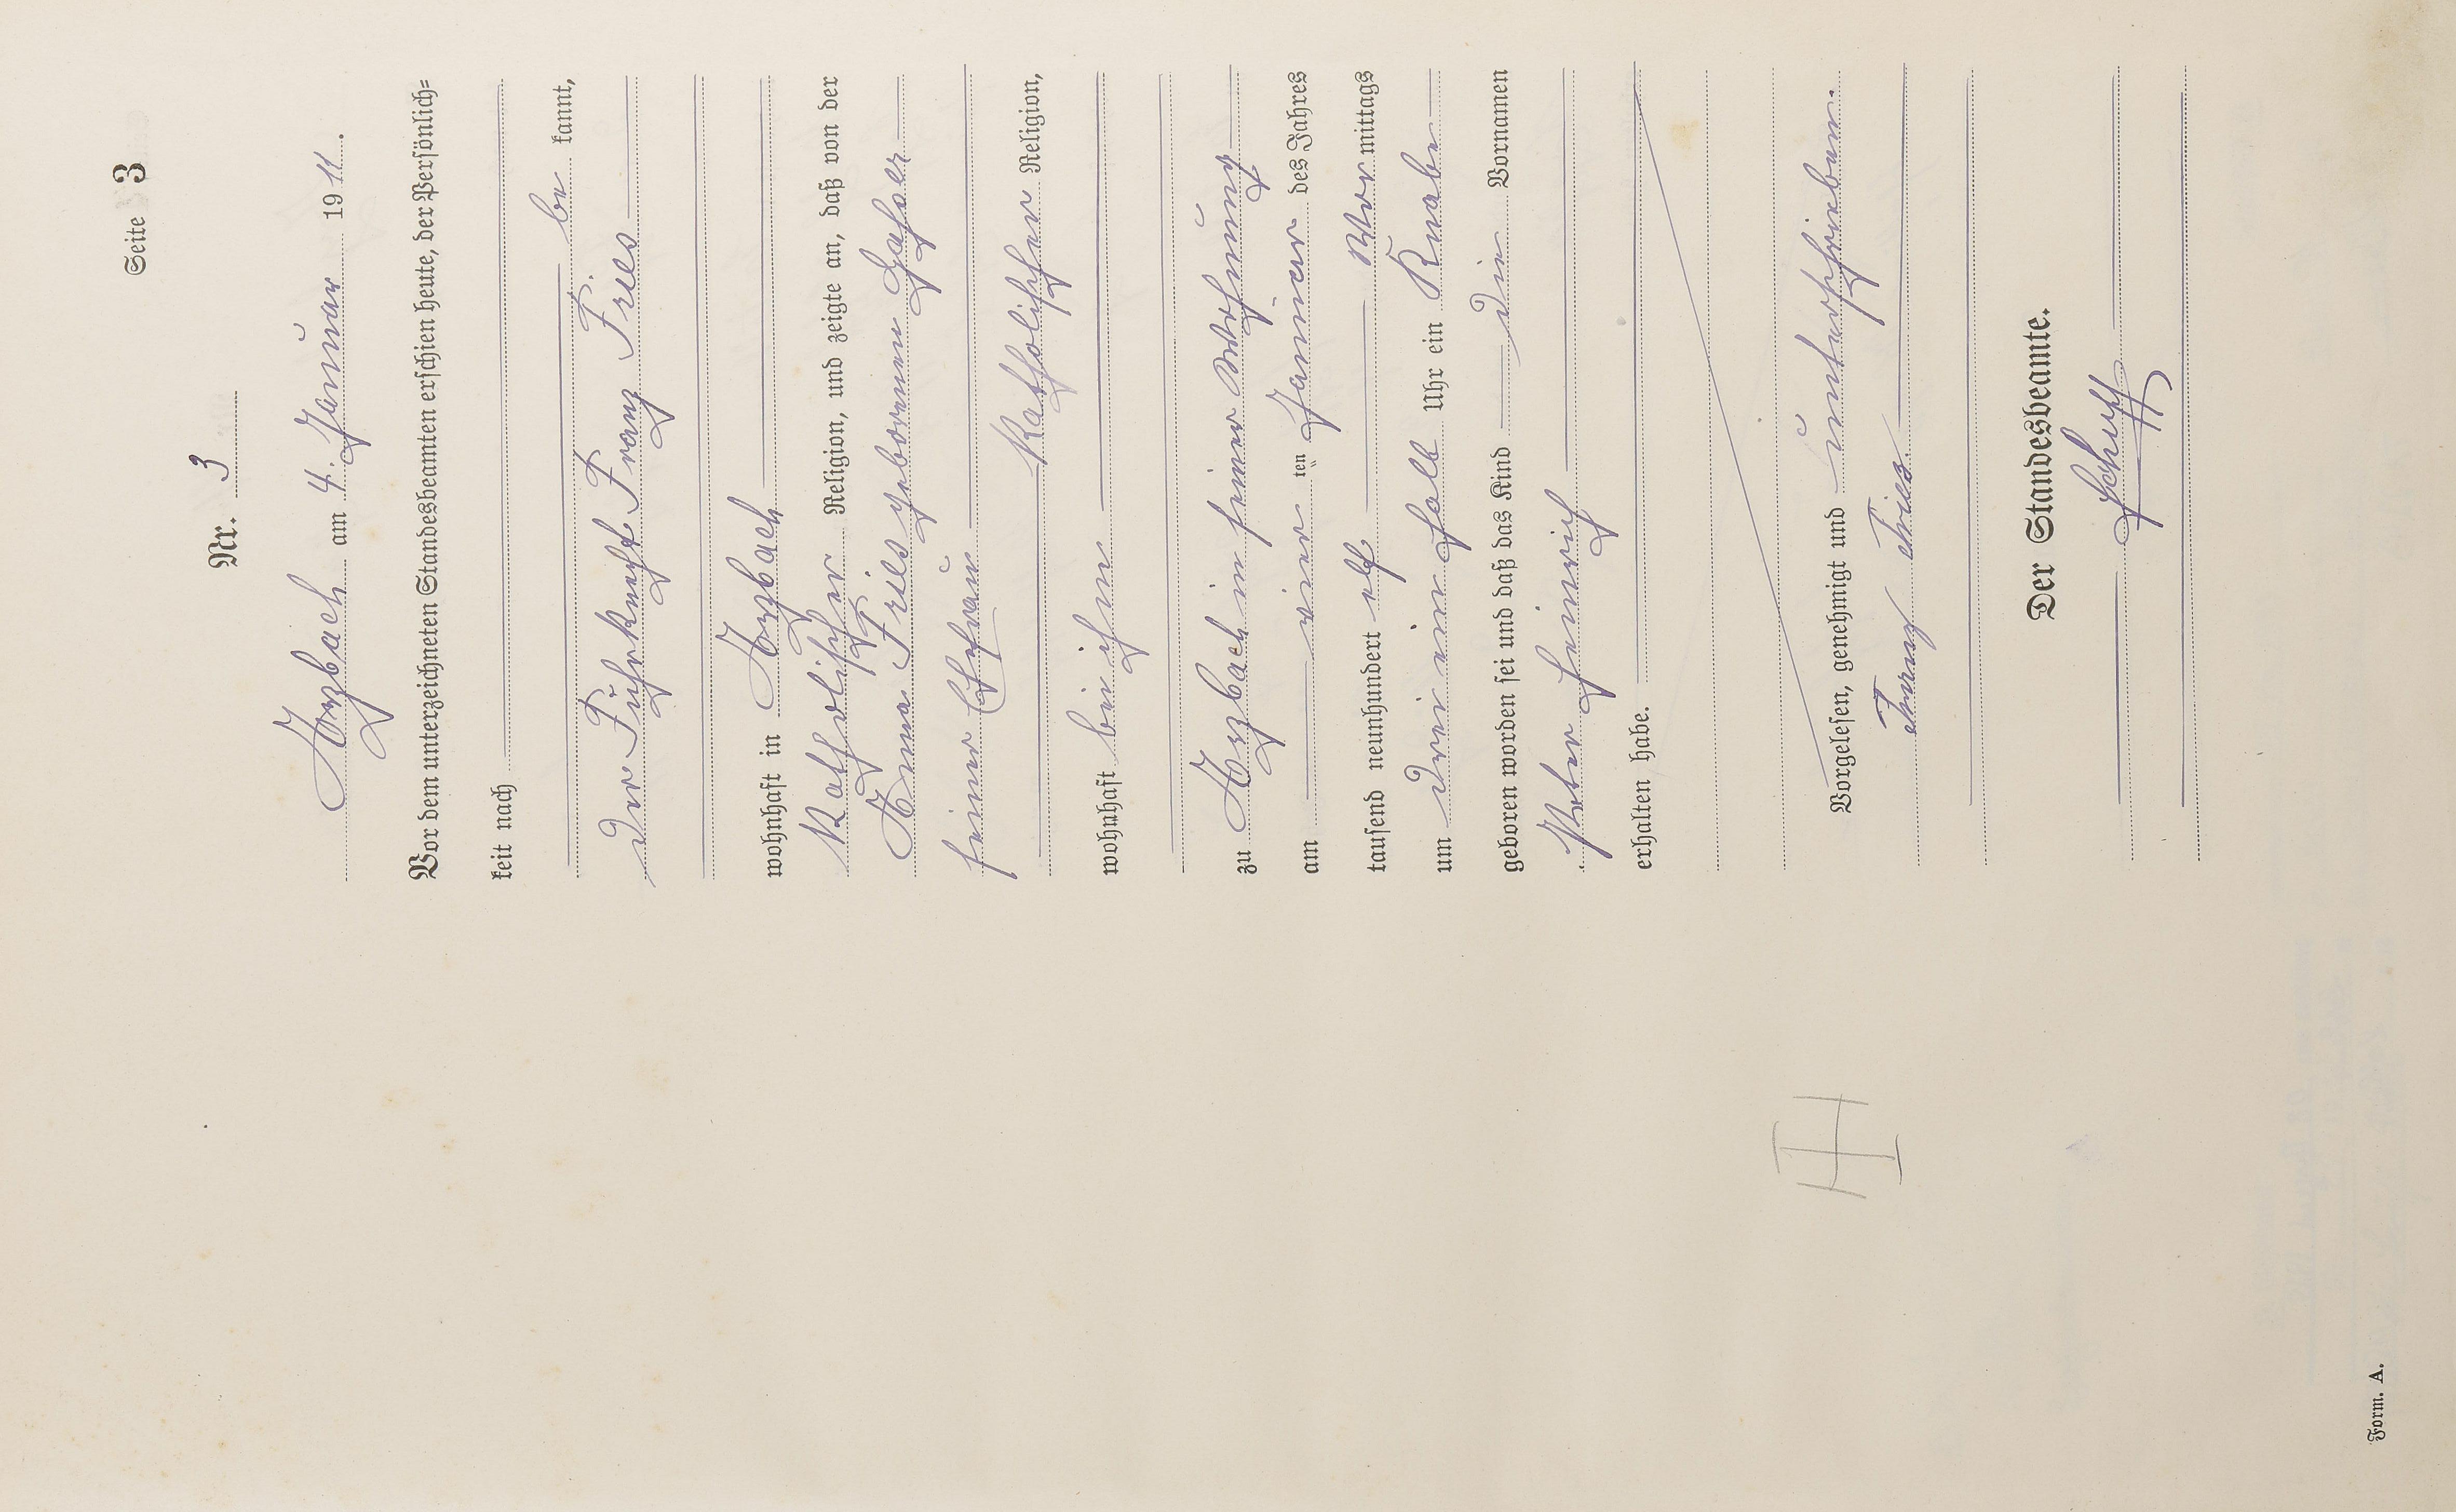 Seite 3
Nr. 3
Arzbach am 4. Januar 1911.
Vor dem unterzeichneten Standesbeamten erschien heute, der Persönlich=
keit nach
be kannt,
der Fuhrknecht Franz Fries
wohnhaft in Arzbach
katholischer Religion, und zeigte an, daß von der
Anna Fries geborenen
seiner Ehefrau
katholischer Religion,
wohnhaft bei ihm
zu Arzbach in seiner Wohnung
am vier ten Januar des Jahres
tausend neunhundert elf Vor mittags
um drei ein halb Uhr ein Knabe
geboren worden sei und daß das Kind die Vornamen
Peter Heinrich
erhalten habe.
Vorgelesen, genehmigt und unterschrieben.
Franz Fries.
Der Standesbeamte.
Form. A.